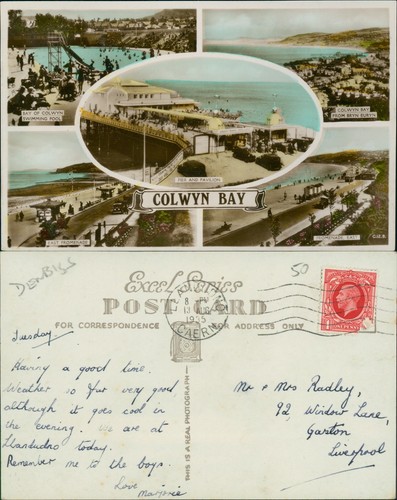 BAY OF COLWYN
SWIMMING POOL
BAY OF COLWYN
FROM BRYN EURYN
PIER AND PAVILION
COLWYN BAY
EAST PROMENADE
PROMENADE, EAST
DENBIGS
50
Excel Series
POST CARD
FOR CORRESPONDENCE
FOR ADDRESS ONLY
LLANDUDNO
8 PM
13 AUG
1935
CAERN
THIS IS A REAL PHOTOGRAPH
Tuesday
Having a good time.
Weather so far very good
although it goes cool in
the evening. We are at
Llandudno today.
Remember me to the boys.
Love
Marjorie
Mr & Mrs Radley,
92, Window Lane,
Garston
Liverpool